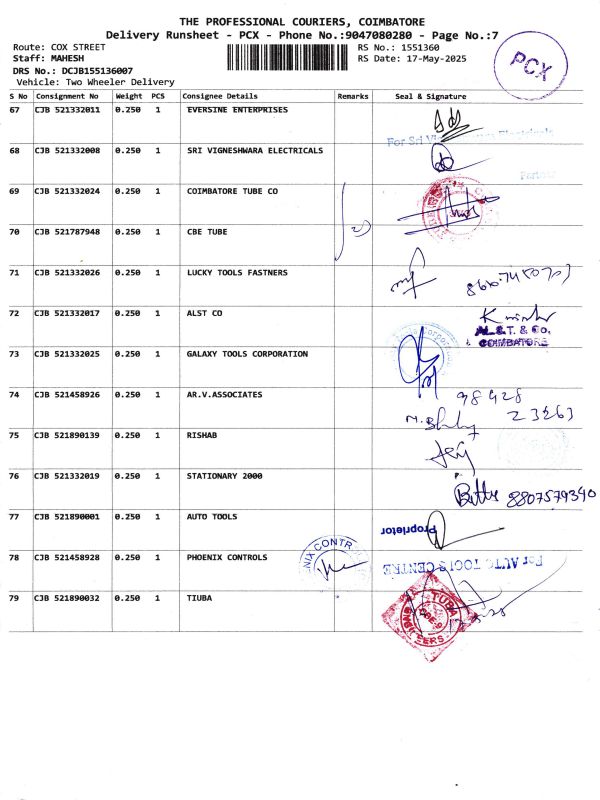 THE PROFESSIONAL COURIERS, COIMBATORE
Delivery Runsheet - PCX - Phone No.:9047080280 - Page No.:7
Route: COX STREET RS No.: 1551360
Staff: MAHESH RS Date: 17-May-2025
DRS No.: DCJB155136007
Vehicle: Two Wheeler Delivery
PCX
S No Consignment No Weight PCS Consignee Details Remarks Seal & Signature
67 CJB 521332011 0.250 1 EVERSINE ENTERPRISES
For Sri Electricals
68 CJB 521332008 0.250 1 SRI VIGNESHWARA ELECTRICALS
69 CJB 521332024 0.250 1 COIMBATORE TUBE CO
70 CJB 521787948 0.250 1 CBE TUBE
71 CJB 521332026 0.250 1 LUCKY TOOLS FASTNERS
72 CJB 521332017 0.250 1 ALST CO
AL.S.T. & Co.
COIMBATORE
73 CJB 521332025 0.250 1 GALAXY TOOLS CORPORATION
74 CJB 521458926 0.250 1 AR.V.ASSOCIATES
98428
23263
75 CJB 521890139 0.250 1 RISHAB
76 CJB 521332019 0.250 1 STATIONARY 2000
8807579340
77 CJB 521890001 0.250 1 AUTO TOOLS
Proprietor
78 CJB 521458928 0.250 1 PHOENIX CONTROLS
For AUTO TOOLS CENTRE
79 CJB 521890032 0.250 1 TIUBA
TUBA